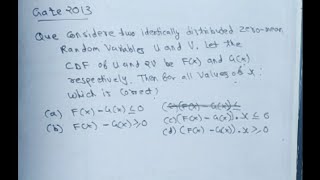 Gate 2013
Que Considere two identically distributed zero-mean
Random Variables U and V. Let the
CDF of U and 2V be F(x) and G(x)
respectively. Then for all Values of x :
which is Correct)
(a) F(x) - G(x) ≤ 0
(b) F(x) - G(x) ≥ 0
(F(x) - G(x) ≤
(c) (F(x) - G(x)) . x ≤ 0
(d) (F(x) - G(x)) . x ≥ 0